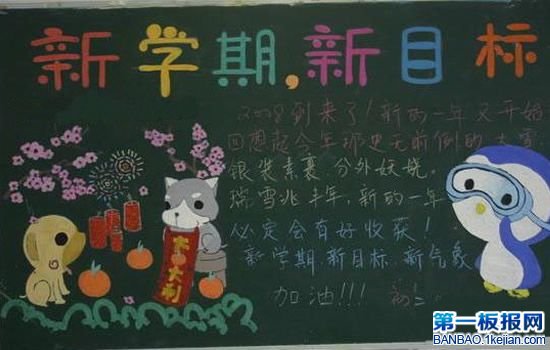 新学期,新目标
2008到来了!新的一年又开始
回想起今年那史无前例的大雪
银装素裹 分外妖娆.
瑞雪兆丰年,新的一年
必定会有好收获!
新学期 新目标 新气象
加油!!!
大吉大利
第一板报网
BANBAO.1kejian.com